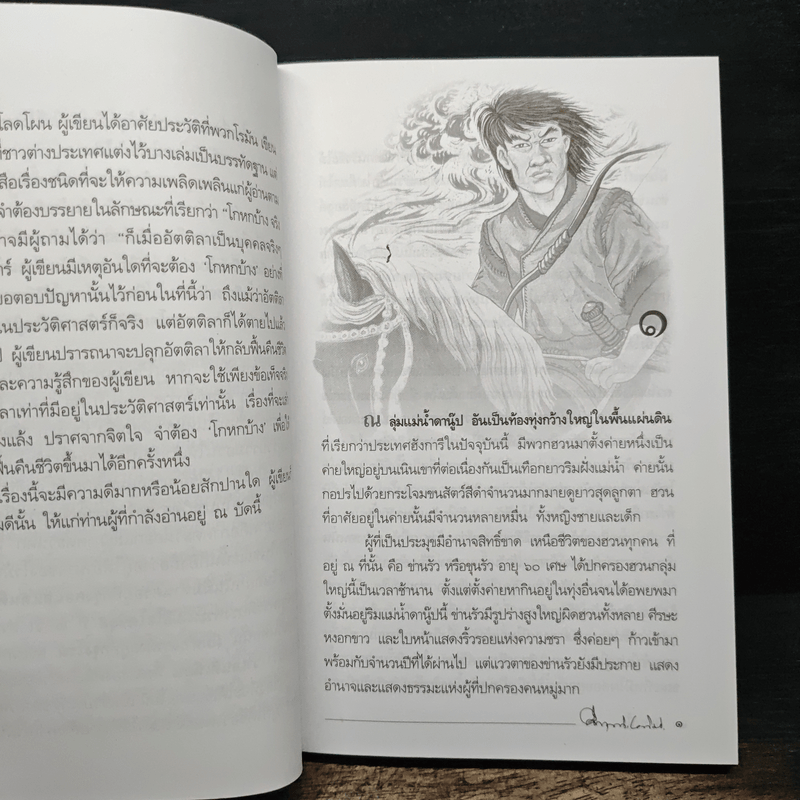 โลดโผน ผู้เขียนได้อาศัยประวัติที่พวกโรมัน เขียน
ที่ชาวต่างประเทศแต่งไว้บางเล่มเป็นบรรทัดฐาน แต่
สือเรื่องชนิดที่จะให้ความเพลิดเพลินแก่ผู้อ่านตาม
จำต้องบรรยายในลักษณะที่เรียกว่า "โกหกบ้าง จริง
าจมีผู้ถามได้ว่า "ก็เมื่ออัตติลาเป็นบุคคลจริงๆ
ร์ ผู้เขียนมีเหตุอันใดที่จะต้อง 'โกหกบ้าง' อย่างที่
ขอตอบปัญหานั้นไว้ก่อนในที่นี้ว่า ถึงแม้ว่าอัตติลา
นประวัติศาสตร์ก็จริง แต่อัตติลาก็ได้ตายไปแล้ว
ผู้เขียนปรารถนาจะปลุกอัตติลาให้กลับฟื้นคืนชีวิต
ละความรู้สึกของผู้เขียน หากจะใช้เพียงข้อเท็จจริง
ลาเท่าที่มีอยู่ในประวัติศาสตร์เท่านั้น เรื่องที่จะเล่า
งแล้ง ปราศจากจิตใจ จำต้อง 'โกหกบ้าง' เพื่อให้
ฟื้นคืนชีวิตขึ้นมาได้อีกครั้งหนึ่ง
เรื่องนี้จะมีความดีมากหรือน้อยสักปานใด ผู้เขียน
มดีนั้น ให้แก่ท่านผู้ที่กำลังอ่านอยู่ ณ บัดนี้
๑
ณ ลุ่มแม่น้ำดานู๊ป อันเป็นท้องทุ่งกว้างใหญ่ในพื้นแผ่นดิน
ที่เรียกว่าประเทศฮังการีในปัจจุบันนี้ มีพวกฮวนมาตั้งค่ายหนึ่งเป็น
ค่ายใหญ่อยู่บนเนินเขาที่ต่อเนื่องกันเป็นเทือกยาวริมฝั่งแม่น้ำ ค่ายนั้น
กอปรไปด้วยกระโจมขนสัตว์สีดำจำนวนมากมายดูยาวสุดลูกตา ฮวน
ที่อาศัยอยู่ในค่ายนั้นมีจำนวนหลายหมื่น ทั้งหญิงชายและเด็ก
ผู้ที่เป็นประมุขมีอำนาจสิทธิ์ขาด เหนือชีวิตของฮวนทุกคน ที่
อยู่ ณ ที่นั้น คือ ข่านรัว หรือขุนรัว อายุ ๖๐ เศษ ได้ปกครองฮวนกลุ่ม
ใหญ่นี้เป็นเวลาช้านาน ตั้งแต่ตั้งค่ายหากินอยู่ในทุ่งอื่นจนได้อพยพมา
ตั้งมั่นอยู่ริมแม่น้ำดานู๊ปนี้ ข่านรัวมีรูปร่างสูงใหญ่ผิดฮวนทั้งหลาย ศีรษะ
หงอกขาว และใบหน้าแสดงริ้วรอยแห่งความชรา ซึ่งค่อยๆ ก้าวเข้ามา
พร้อมกับจำนวนปีที่ได้ผ่านไป แต่แววตาของข่านรัวยังมีประกาย แสดง
อำนาจและแสดงธรรมะแห่งผู้ที่ปกครองคนหมู่มาก
๑